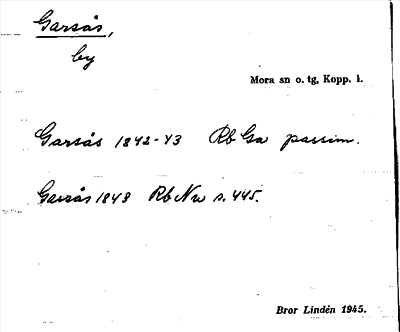 Garsås,
by
Mora sn o. tg, Kopp. l.
Garsås 1842-43 Rb Ga passim.
Garsås 1848 Rb Nw s. 445.
Bror Lindén 1945.